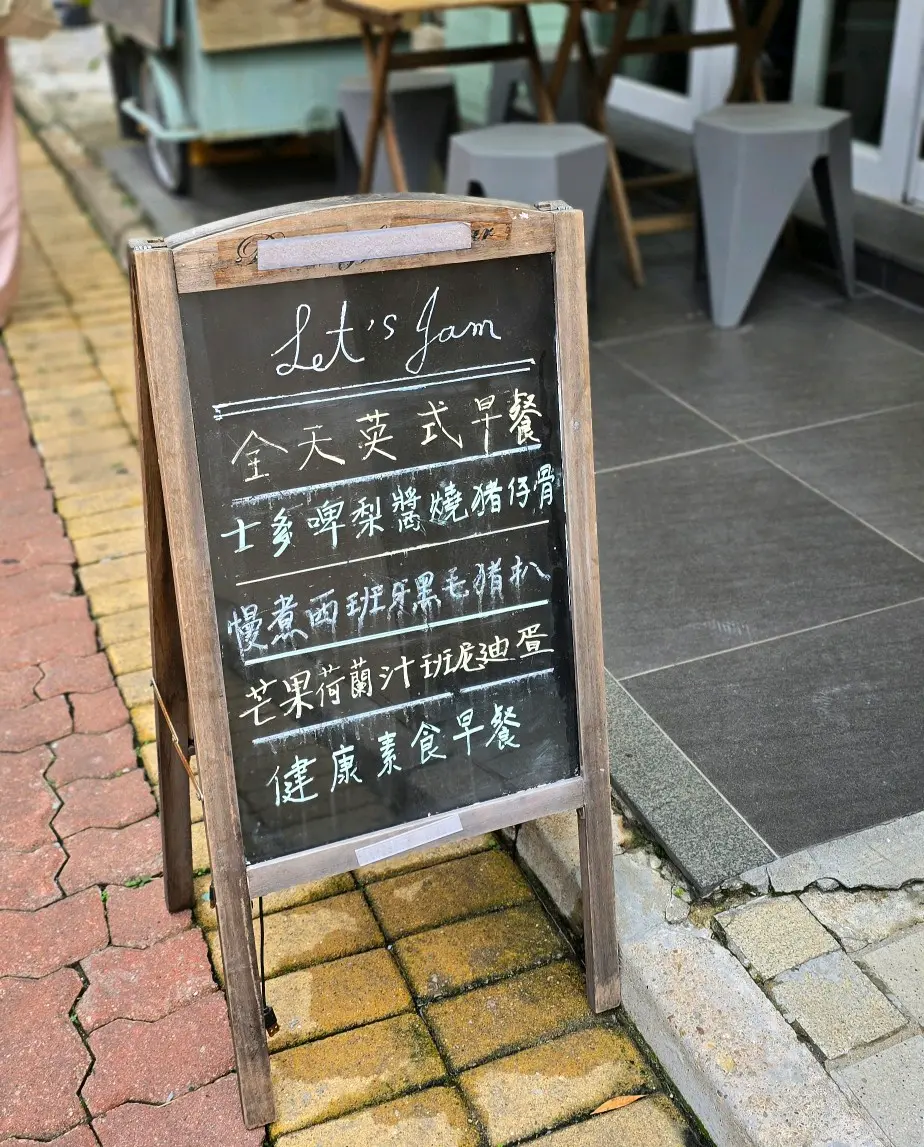 Let's Jam
全天英式早餐
士多啤梨醬燒猪仔骨
慢煮西班牙黑毛猪扒
芒果荷蘭汁班尼迪蛋
健康素食早餐